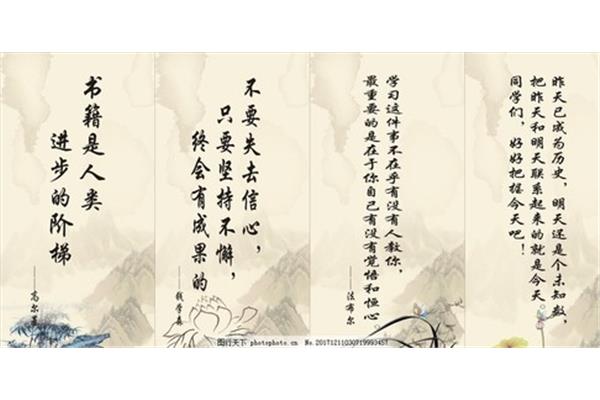 书籍是人类
进步的阶梯
——高尔
不要失去信心，
只要坚持不懈，
终会有成果的
——钱学森
学习这件事不在乎有没有人教你，
最重要的是在于你自己有没有觉悟和恒心
——法布尔
昨天已成为历史，明天还是个未知数，
把昨天和明天联系起来的就是今天。
同学们，好好把握今天吧！
图行天下 photophoto.cn No.20171211030719993457